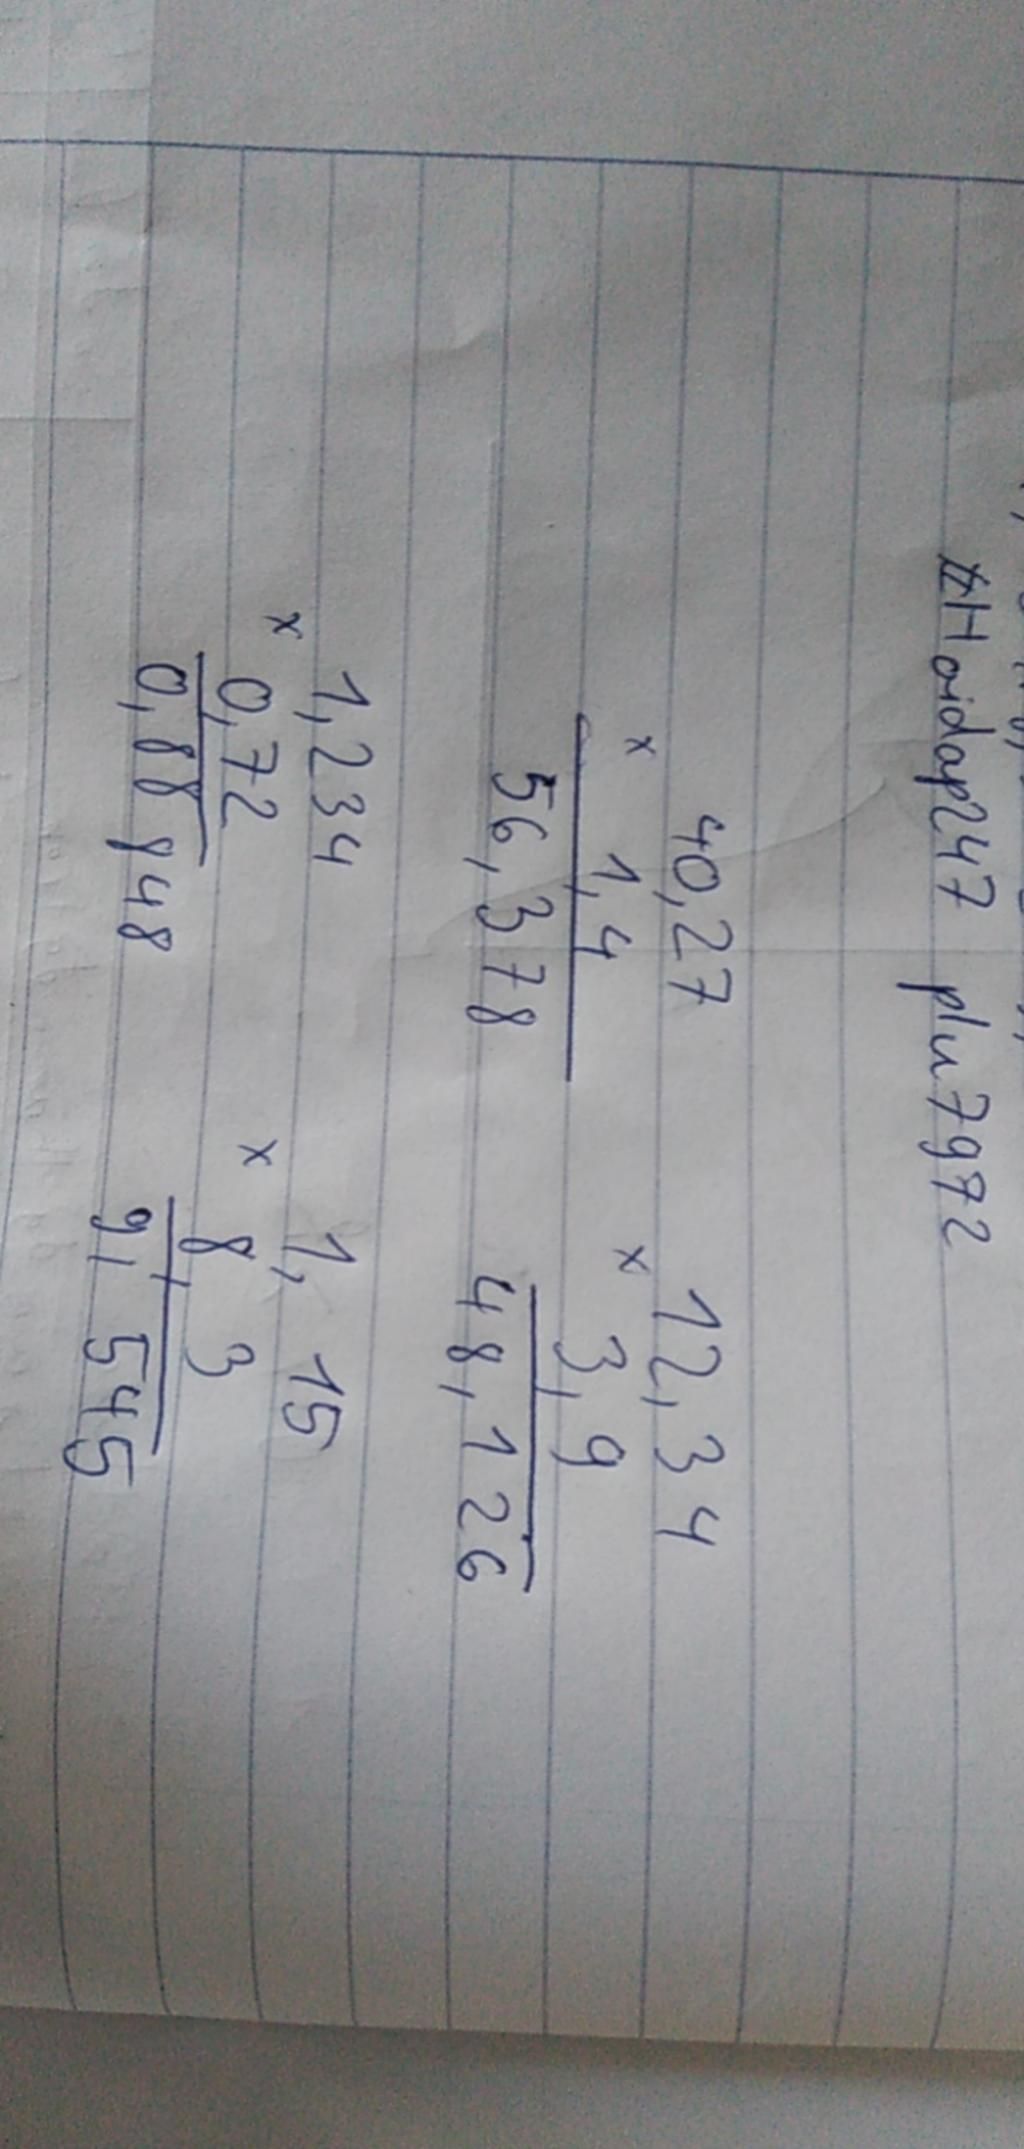 Hoidap247 plu7972
40,27 12,34
x 1,4 x 3,9
56,378 48,126
1,234 1,15
x 0,72 x 8,3
0,88848 9,545